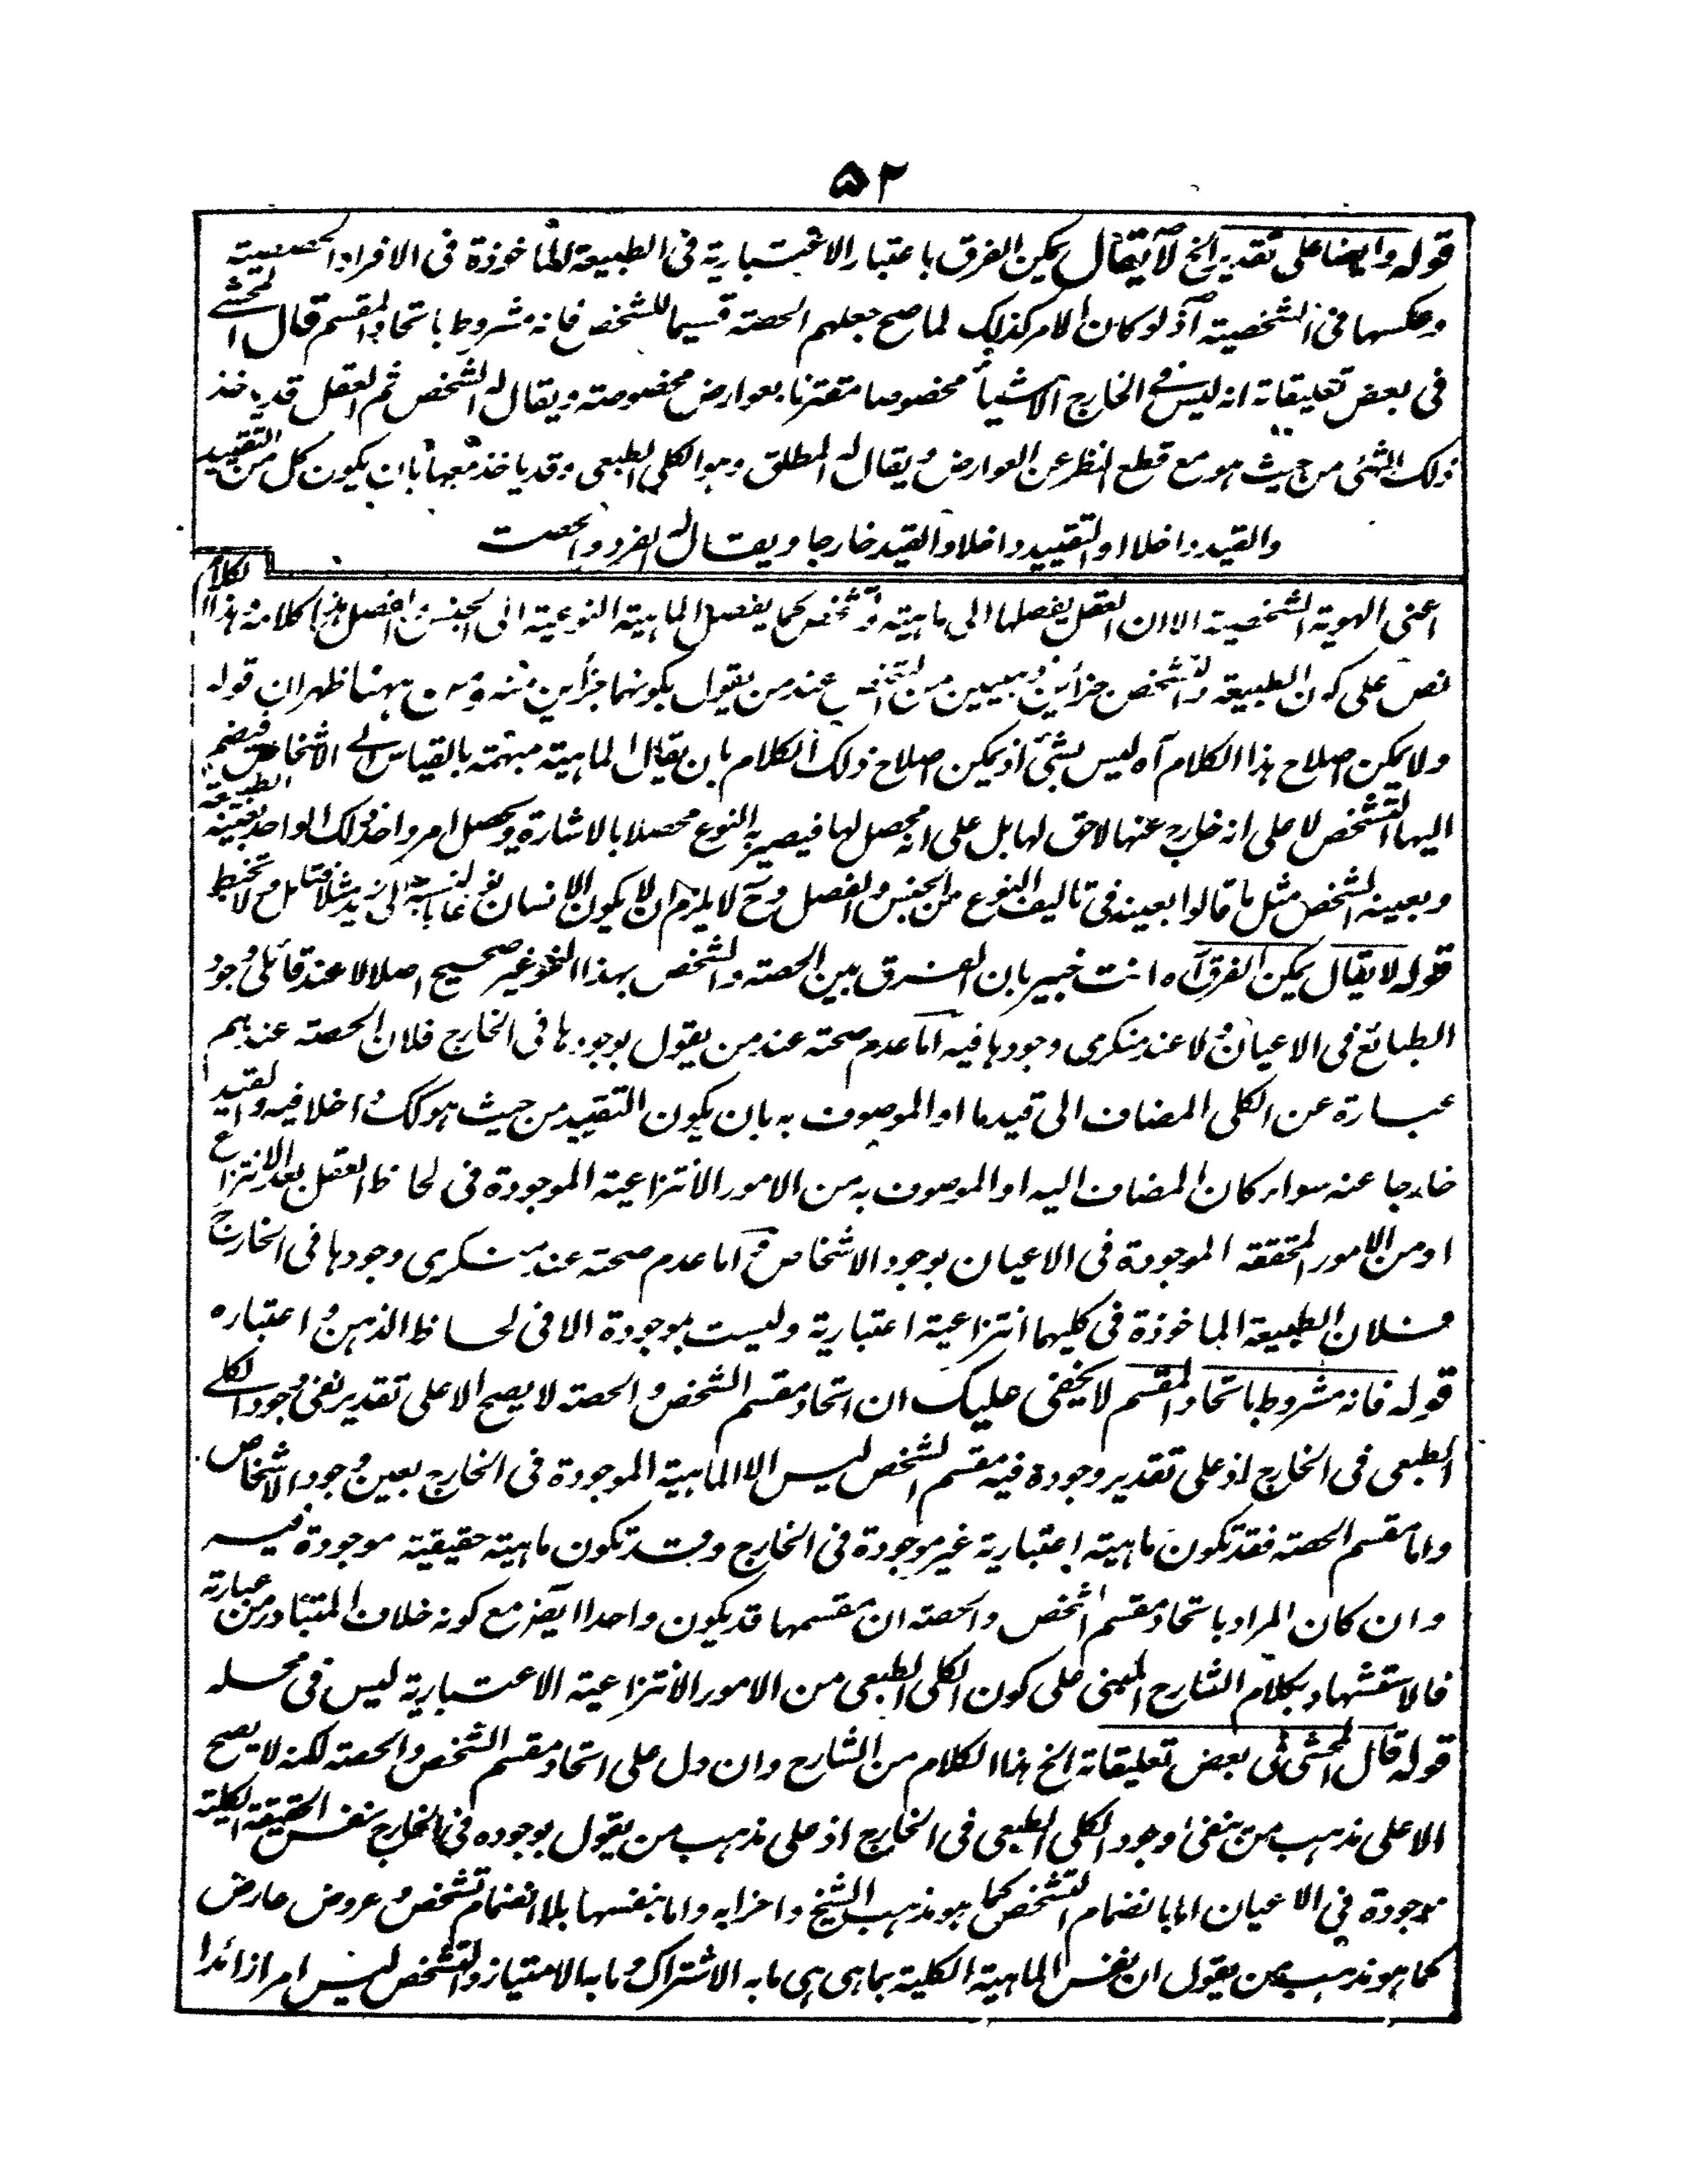 ۵۲
قوله وايضا على تقدير الخ لا يقال يمكن الفرق باعتبار الاعتبارية فى الطبيعة الماخوذة فى الافراد الحصصية
وعكسها فى الشخصية اذ لو كان الامر كذلك لما صح جعلهم الحصته قسيما للشخص فانه مشروط باتحاد المقسم قال المحشے
فى بعض تعليقاته انه ليس فے الخارج الا شيأ مخصوصا مقترنا بعوارض مخصوصته ويقال له الشخص ثم العقل قد ياخذ
ذلك الشئ من حيث هو مع قطع النظر عن العوارض ويقال له المطلق وهو الكلى الطبعى وقد ياخذ معها بان يكون كل من التقييد
والقيد داخلا او التقييد داخلا والقيد خارجا ويقال له الفرد والحصت
اعنى الهوية الشخصية الا ان العقل يفصلها الى ماهيته وتشخص كما يفصل الماهية النوعية الى الجنس والفصل هذا كلامه وهذا الكلام
نص على كون الطبيعة والتشخص جزأين عند من يقول بكونهما جزأين منه ومن ههنا ظهر ان قوله
ولا يمكن اصلاح هذا الكلام آه ليس بشئ اذ يمكن اصلاح ذلك الكلام بان يقال الماهية مبهمة بالقياس الے الاشخاص فيضم
اليها التشخص لا على انه خارج عنها لاحق لها بل على انه محصل لها فيصير به النوع محصلا بالاشارة ويحصل امر واحد ذلك الواحد بعينه الطبيعة
وبعينه الشخص مثل ما قالوا بعينه فى تاليف النوع من الجنس والفصل وح لا يلزم ان لا يكون الانسان نوعا بالنسبة الى زيد مثلا فتامل ولا تخبط
قوله لا يقال يمكن الفرق آه انت خبير بان الفرق بين الحصته والشخص بهذا النحو غير صحيح اصلا لا عند قائلى وجود
الطبائع فى الاعيان ولا عند منكرى وجودها فيه اما عدم صحته عند من يقول بوجودها فى الخارج فلان الحصته عندهم
عبارة عن الكلى المضاف الى قيد ما او الموصوف به بان يكون التقييد من حيث هو كك داخلا فيه والقيد
خارجا عنه سواء كان المضاف اليه او الموصوف به من الامور الانتزاعية الموجودة فى لحاظ العقل بعد الانتزاع
او من الامور المحققة الموجودة فى الاعيان بوجود الاشخاص واما عدم صحته عند منكرى وجودها فى الخارج
فلان الطبيعة الماخوذة فى كليهما انتزاعية اعتبارية وليست بموجودة الا فى لحاظ الذهن واعتباره
قوله فانه مشروط باتحاد المقسم لا يخفى عليك ان اتحاد مقسم الشخص والحصته لا يصح الا على تقدير نفى وجود الكلے
الطبعى فى الخارج اذ على تقدير وجوده فيه مقسم الشخص ليس الا الماهية الموجودة فى الخارج بعين وجود الاشخاص
واما مقسم الحصته فقد تكون ماهيته اعتبارية غير موجودة فى الخارج وقد تكون ماهيته حقيقية موجودة فيه
وان كان المراد باتحاد مقسم الشخص والحصته ان مقسمها قد يكون واحدا ايضا مع كونه خلاف المتبادر من عبارته
فالاستشهاد بكلام الشارح المبنى على كون الكلى الطبعى من الامور الانتزاعية الاعتبارية ليس فى محله
قوله قال المحشى فى بعض تعليقاته الخ هذا الكلام من الشارح وان دل على اتحاد مقسم الشخص والحصته لكنه لا يصح
الا على مذهب من ينفى وجود الكلى الطبعى فى الخارج اذ على مذهب من يقول بوجوده فى الخارج نفس الحقيقة الكلية
موجودة فى الاعيان اما بانضمام التشخص كما هو مذهب الشيخ واحزابه واما بنفسها بلا انضمام تشخص وعروض عارض
كما هو مذهب من يقول ان نفس الماهية الكلية بما هى هى ما به الاشتراك وما به الامتياز والتشخص ليس امرا زائدا